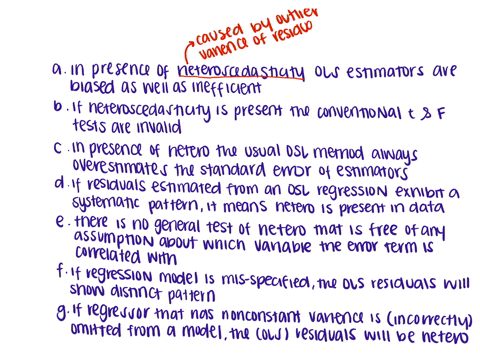 caused by outlier
varience of residuo
a. in presence of heteroscedasticity OLS estimators are
biased as well as inefficient
b. if heteroscedasticity is present the conventional t & F
tests are invalid
c. in presence of hetero the usual OSL method always
overestimates the standard error of estimators
d. if residuals estimated from an OSL regression exhibit a
systematic pattern, it means hetero is present in data
e. there is no general test of hetero that is free of any
assumption about which variable the error term is
correlated with
f. if regression model is mis-specified, the OLS residuals will
show distinct pattern
g. if regressor that has nonconstant varience is (incorrectly)
omitted from a model, the (OLS) residuals will be hetero